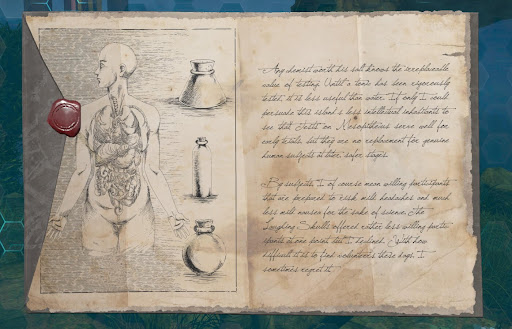 Any chemist worth his salt knows the irreplaceable
value of testing. Until a tonic has been rigorously
tested, it is less useful than water. If only I could
persuade this island's less intellectual inhabitants to
see that. Tests on Mesopithecus serve well for
early trials, but they are no replacement for genuine
human subjects at later, safer stages.
By subjects, I of course mean willing participants
that are prepared to risk mild headaches and much
less mild nausea for the sake of science. The
Laughing Skulls offered rather less willing partici-
pants at one point, but I declined. With how
difficult it is to find volunteers these days, I
sometimes regret it.